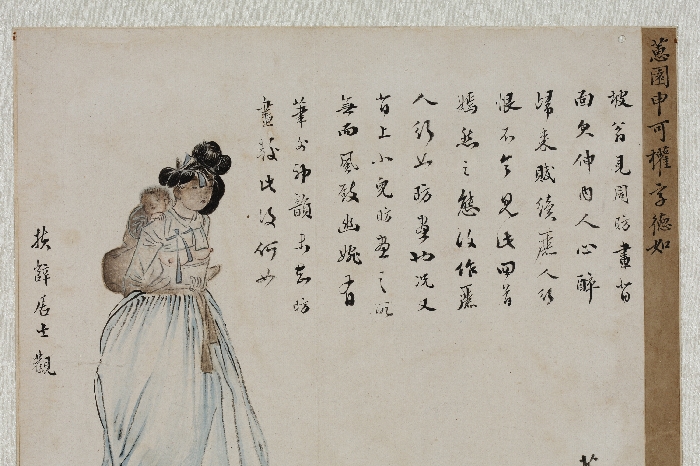 蕙園申可權字德如
坡翁見周昉畫背
面欠伸內人心醉
歸來賦續麗人行
恨不令見此回首
嫣然之態復作麗
人行如昉畫也況又
背上小兒昉畫之所
無而風致幽婉有
筆外神韻未知昉
畫較此復何如
扶辭居士觀